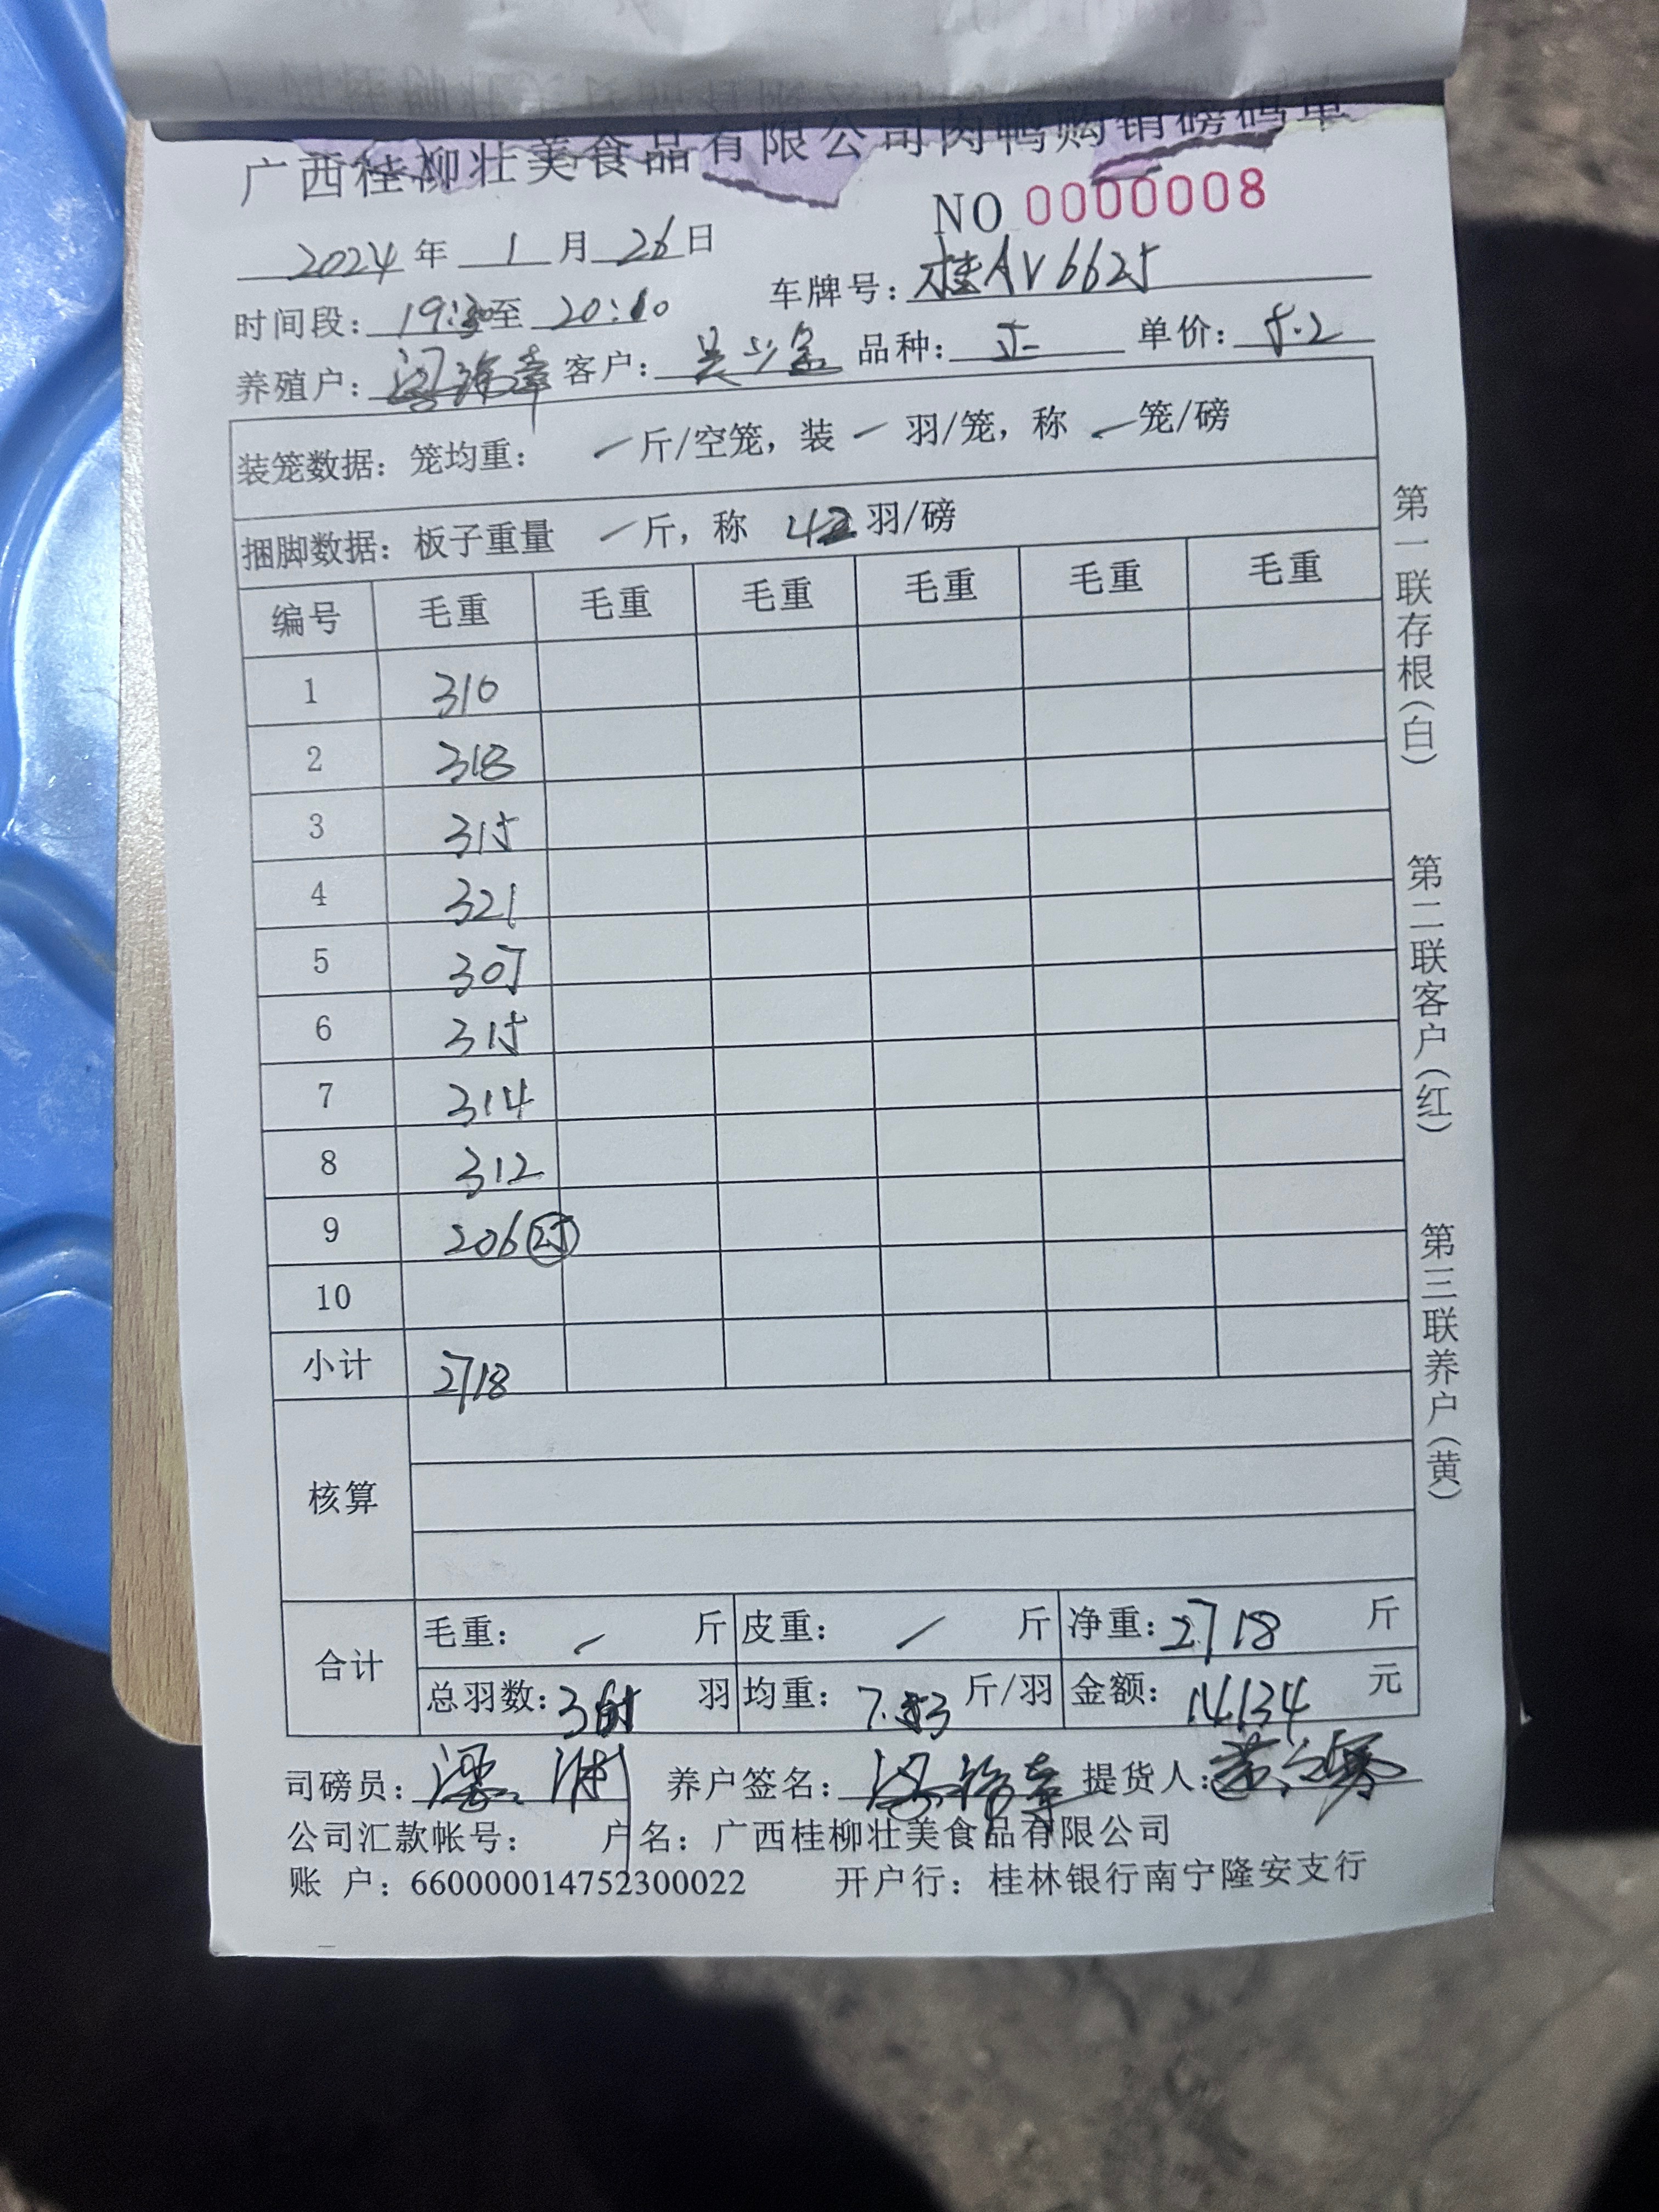 广西桂柳壮美食品有限公司肉鸭购销磅码单
NO 0000008
2024 年 1 月 26 日
车牌号: 桂AV6625
时间段: 19:30 至 20:10
养殖户: 客户: 品种: 正 单价: 5.2
装笼数据: 笼均重: / 斤/空笼, 装 / 羽/笼, 称 / 笼/磅
捆脚数据: 板子重量 / 斤, 称 42 羽/磅
编号 毛重 毛重 毛重 毛重 毛重 毛重
1 310
2 318
3 315
4 321
5 307
6 315
7 314
8 312
9 206 25
10
小计 2718
核算
合计 毛重: / 斤 皮重: / 斤 净重: 2718 斤
总羽数: 361 羽 均重: 7.53 斤/羽 金额: 14134 元
司磅员: 养户签名: 提货人:
公司汇款帐号: 户名: 广西桂柳壮美食品有限公司
账 户: 660000014752300022 开户行: 桂林银行南宁隆安支行
第一联存根(白) 第二联客户(红) 第三联养户(黄)